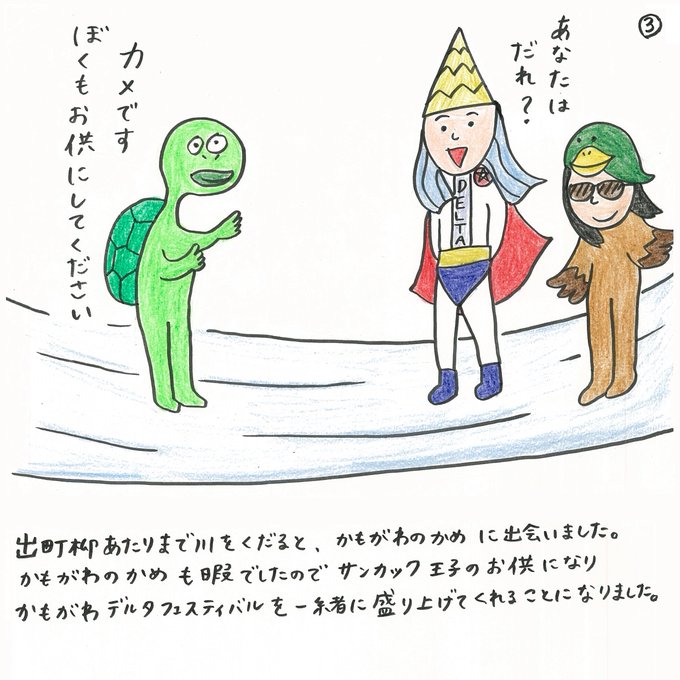 ③
あなたは
だれ?
カメです
ぼくもお供にしてください
DELTA
出町柳あたりまで川をくだると、かもがわのかめに出会いました。
かもがわのかめも暇でしたのでサンカック王子のお供になり
かもがわデルタフェスティバルを一緒に盛り上げてくれることになりました。